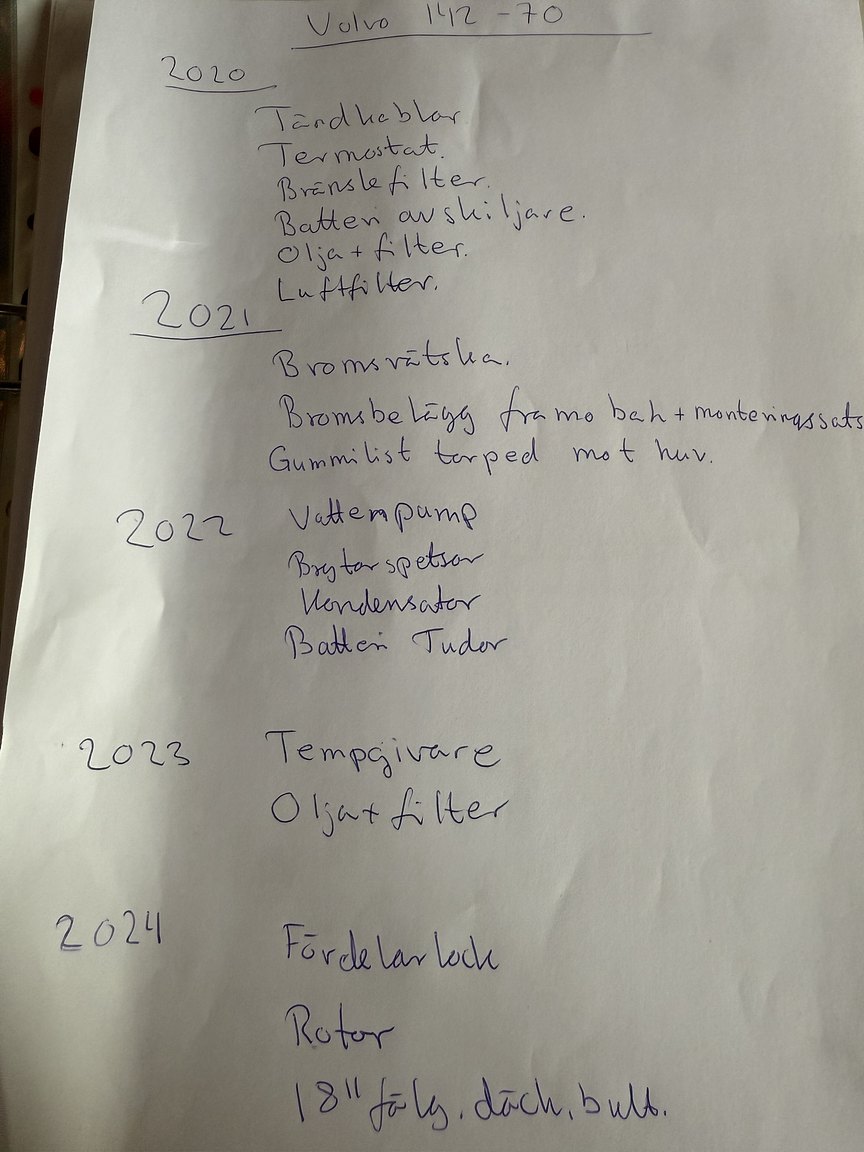 Volvo 142 -70
2020
Tändkablar
Termostat.
Bränslefilter.
Batteri avskiljare.
Olja + filter.
Luftfilter.
2021
Bromsvätska.
Bromsbelägg fram o bak + monteringssats
Gummilist torped mot huv.
2022 Vattenpump
Brytarspetsar
Kondensator
Batteri Tudor
2023 Tempgivare
Olja + filter
2024 Fördelarlock
Rotor
18" fälg, däck, bult.